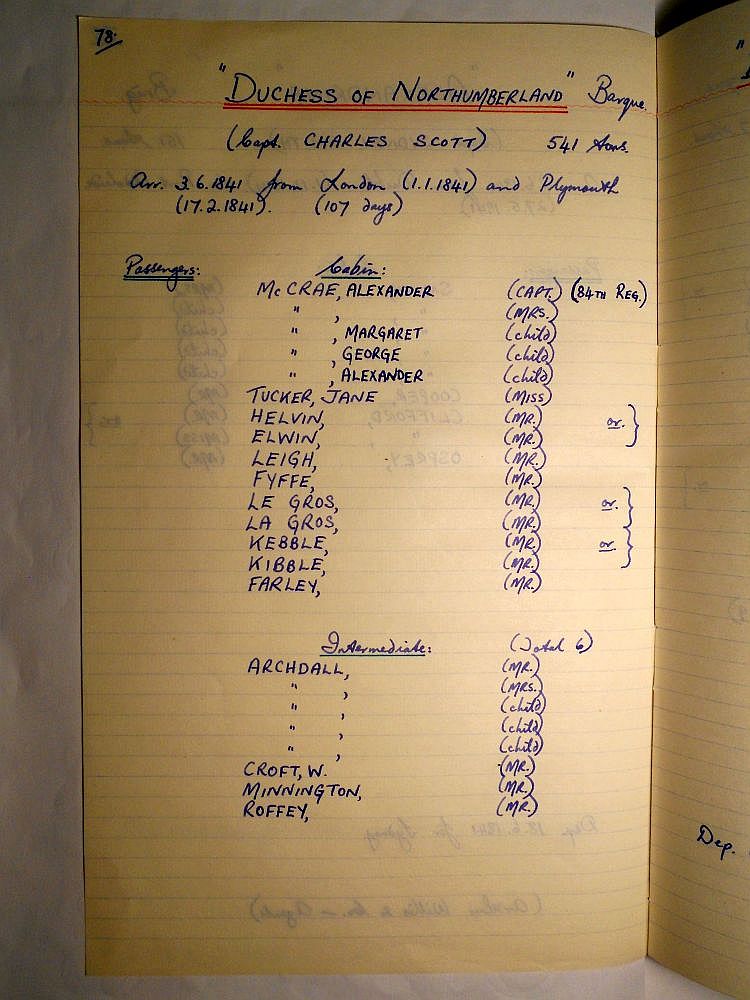 78.
"DUCHESS OF NORTHUMBERLAND" Barque.
(Capt. CHARLES SCOTT) 541 tons.
Arr. 3.6.1841 from London (1.1.1841) and Plymouth
(17.2.1841). (107 days)
Passengers: Cabin:
McCRAE, ALEXANDER (CAPT.) (84TH REG.)
" , (MRS.)
" , MARGARET (child)
" , GEORGE (child)
" , ALEXANDER (child)
TUCKER, JANE (MISS)
HELVIN, (MR.) or. }
ELWIN, (MR.)
LEIGH, (MR.)
FYFFE, (MR.)
LE GROS, (MR.) or. }
LA GROS, (MR.)
KEBBLE, (MR.) or. }
KIBBLE, (MR.)
FARLEY, (MR.)
Intermediate: (Total 6)
ARCHDALL, (MR.)
" , (MRS.)
" , (child)
" , (child)
" , (child)
CROFT, W. (MR.)
MINNINGTON, (MR.)
ROFFEY, (MR.)
Dep.